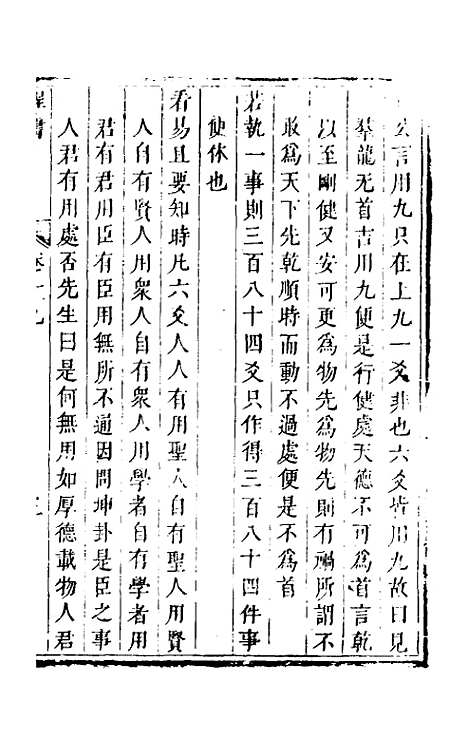 公言用九只在上九一爻非也六爻皆用九故曰見
羣龍无首吉用九便是行健處天德不可為首言乾
以至剛健又安可更為物先為物先則有禍所謂不
敢為天下先乾順時而動不過處便是不為首
若執一事則三百八十四爻只作得三百八十四件事
便休也
看易且要知時凡六爻人人有用聖人自有聖人用賢
人自有賢人用衆人自有衆人用學者自有學者用
君有君用臣有臣用無所不通因問坤卦是臣之事
人君有用處否先生曰是何無用如厚德載物人君
程書
卷十九